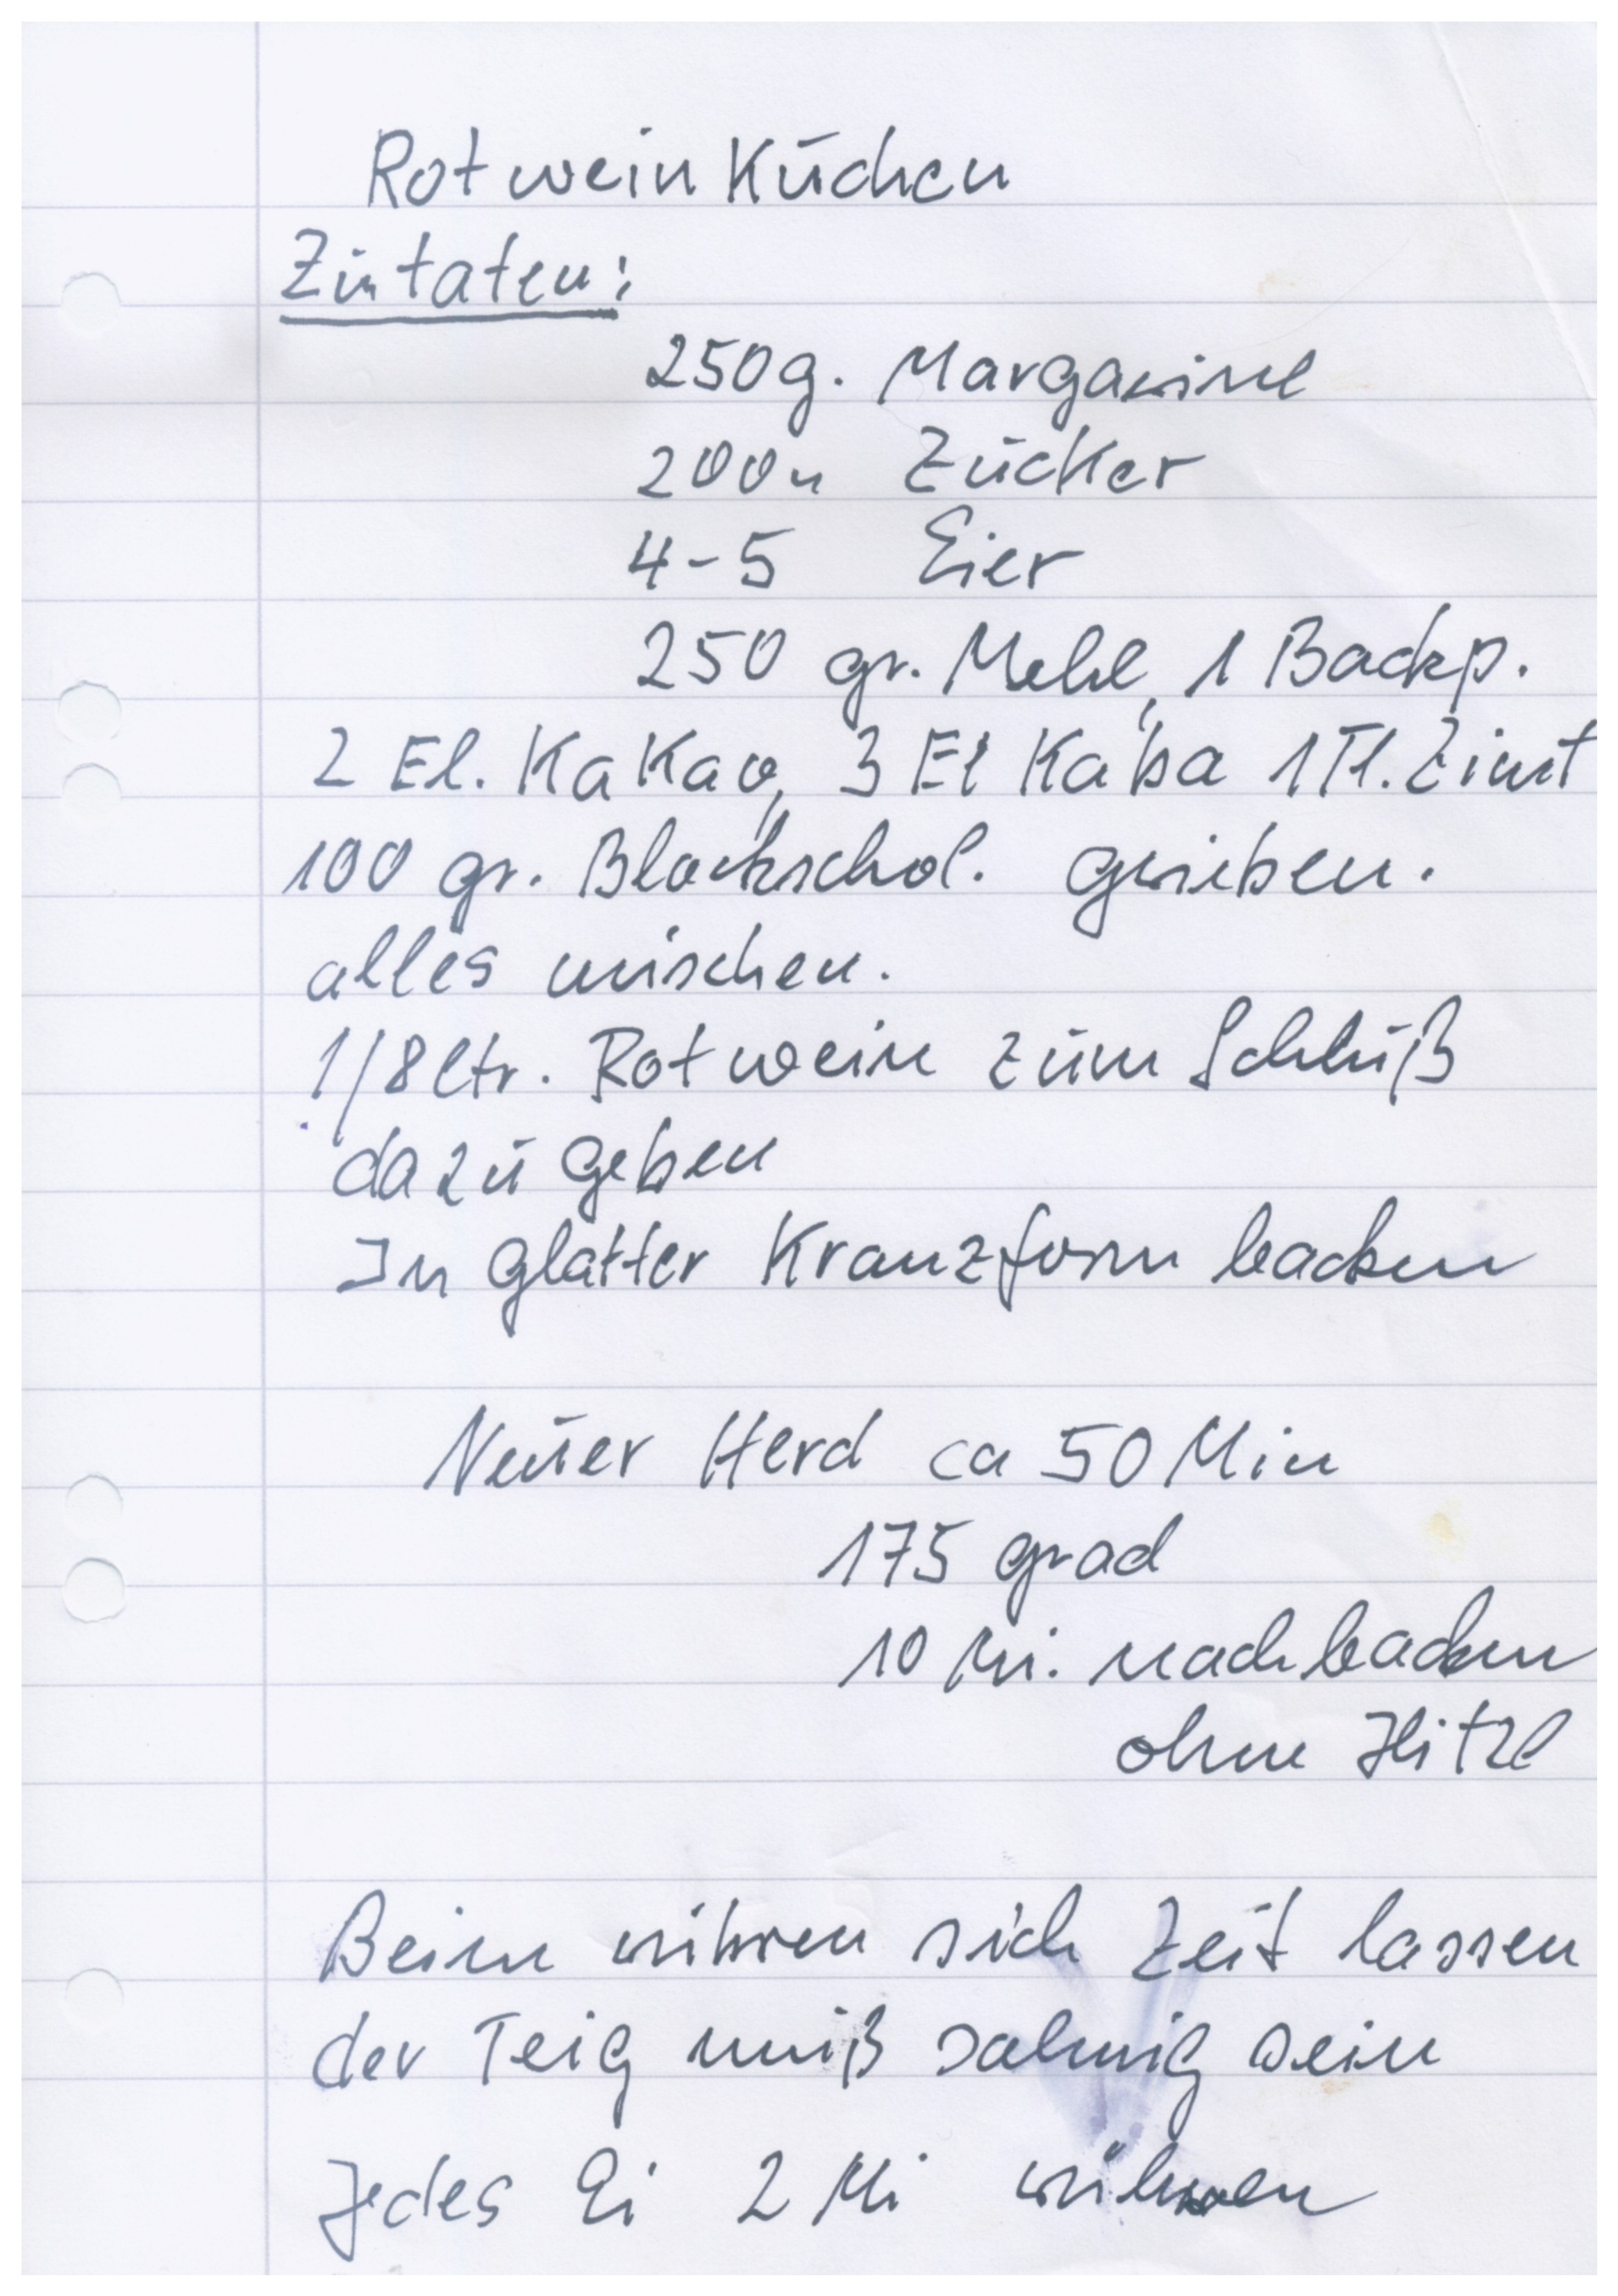 Rotwein Kuchen
Zutaten:
250g. Margarine
200 " Zucker
4-5 Eier
250 gr. Mehl, 1 Backp.
2 El. Kakao, 3 El Kaba 1 Tl. Zimt
100 gr. Blockschol. gerieben.
alles mischen.
1/8 ltr. Rotwein zum Schluß
dazu geben
In glatter Kranzform backen
Neuer Herd ca 50 Min
175 grad
10 Mi. nachbacken
ohne Hitze
Beim rühren sich Zeit lassen
der Teig muß sahnig sein
Jedes Ei 2 Mi rühren